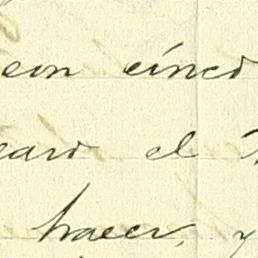 con cinco
el
hacer, y